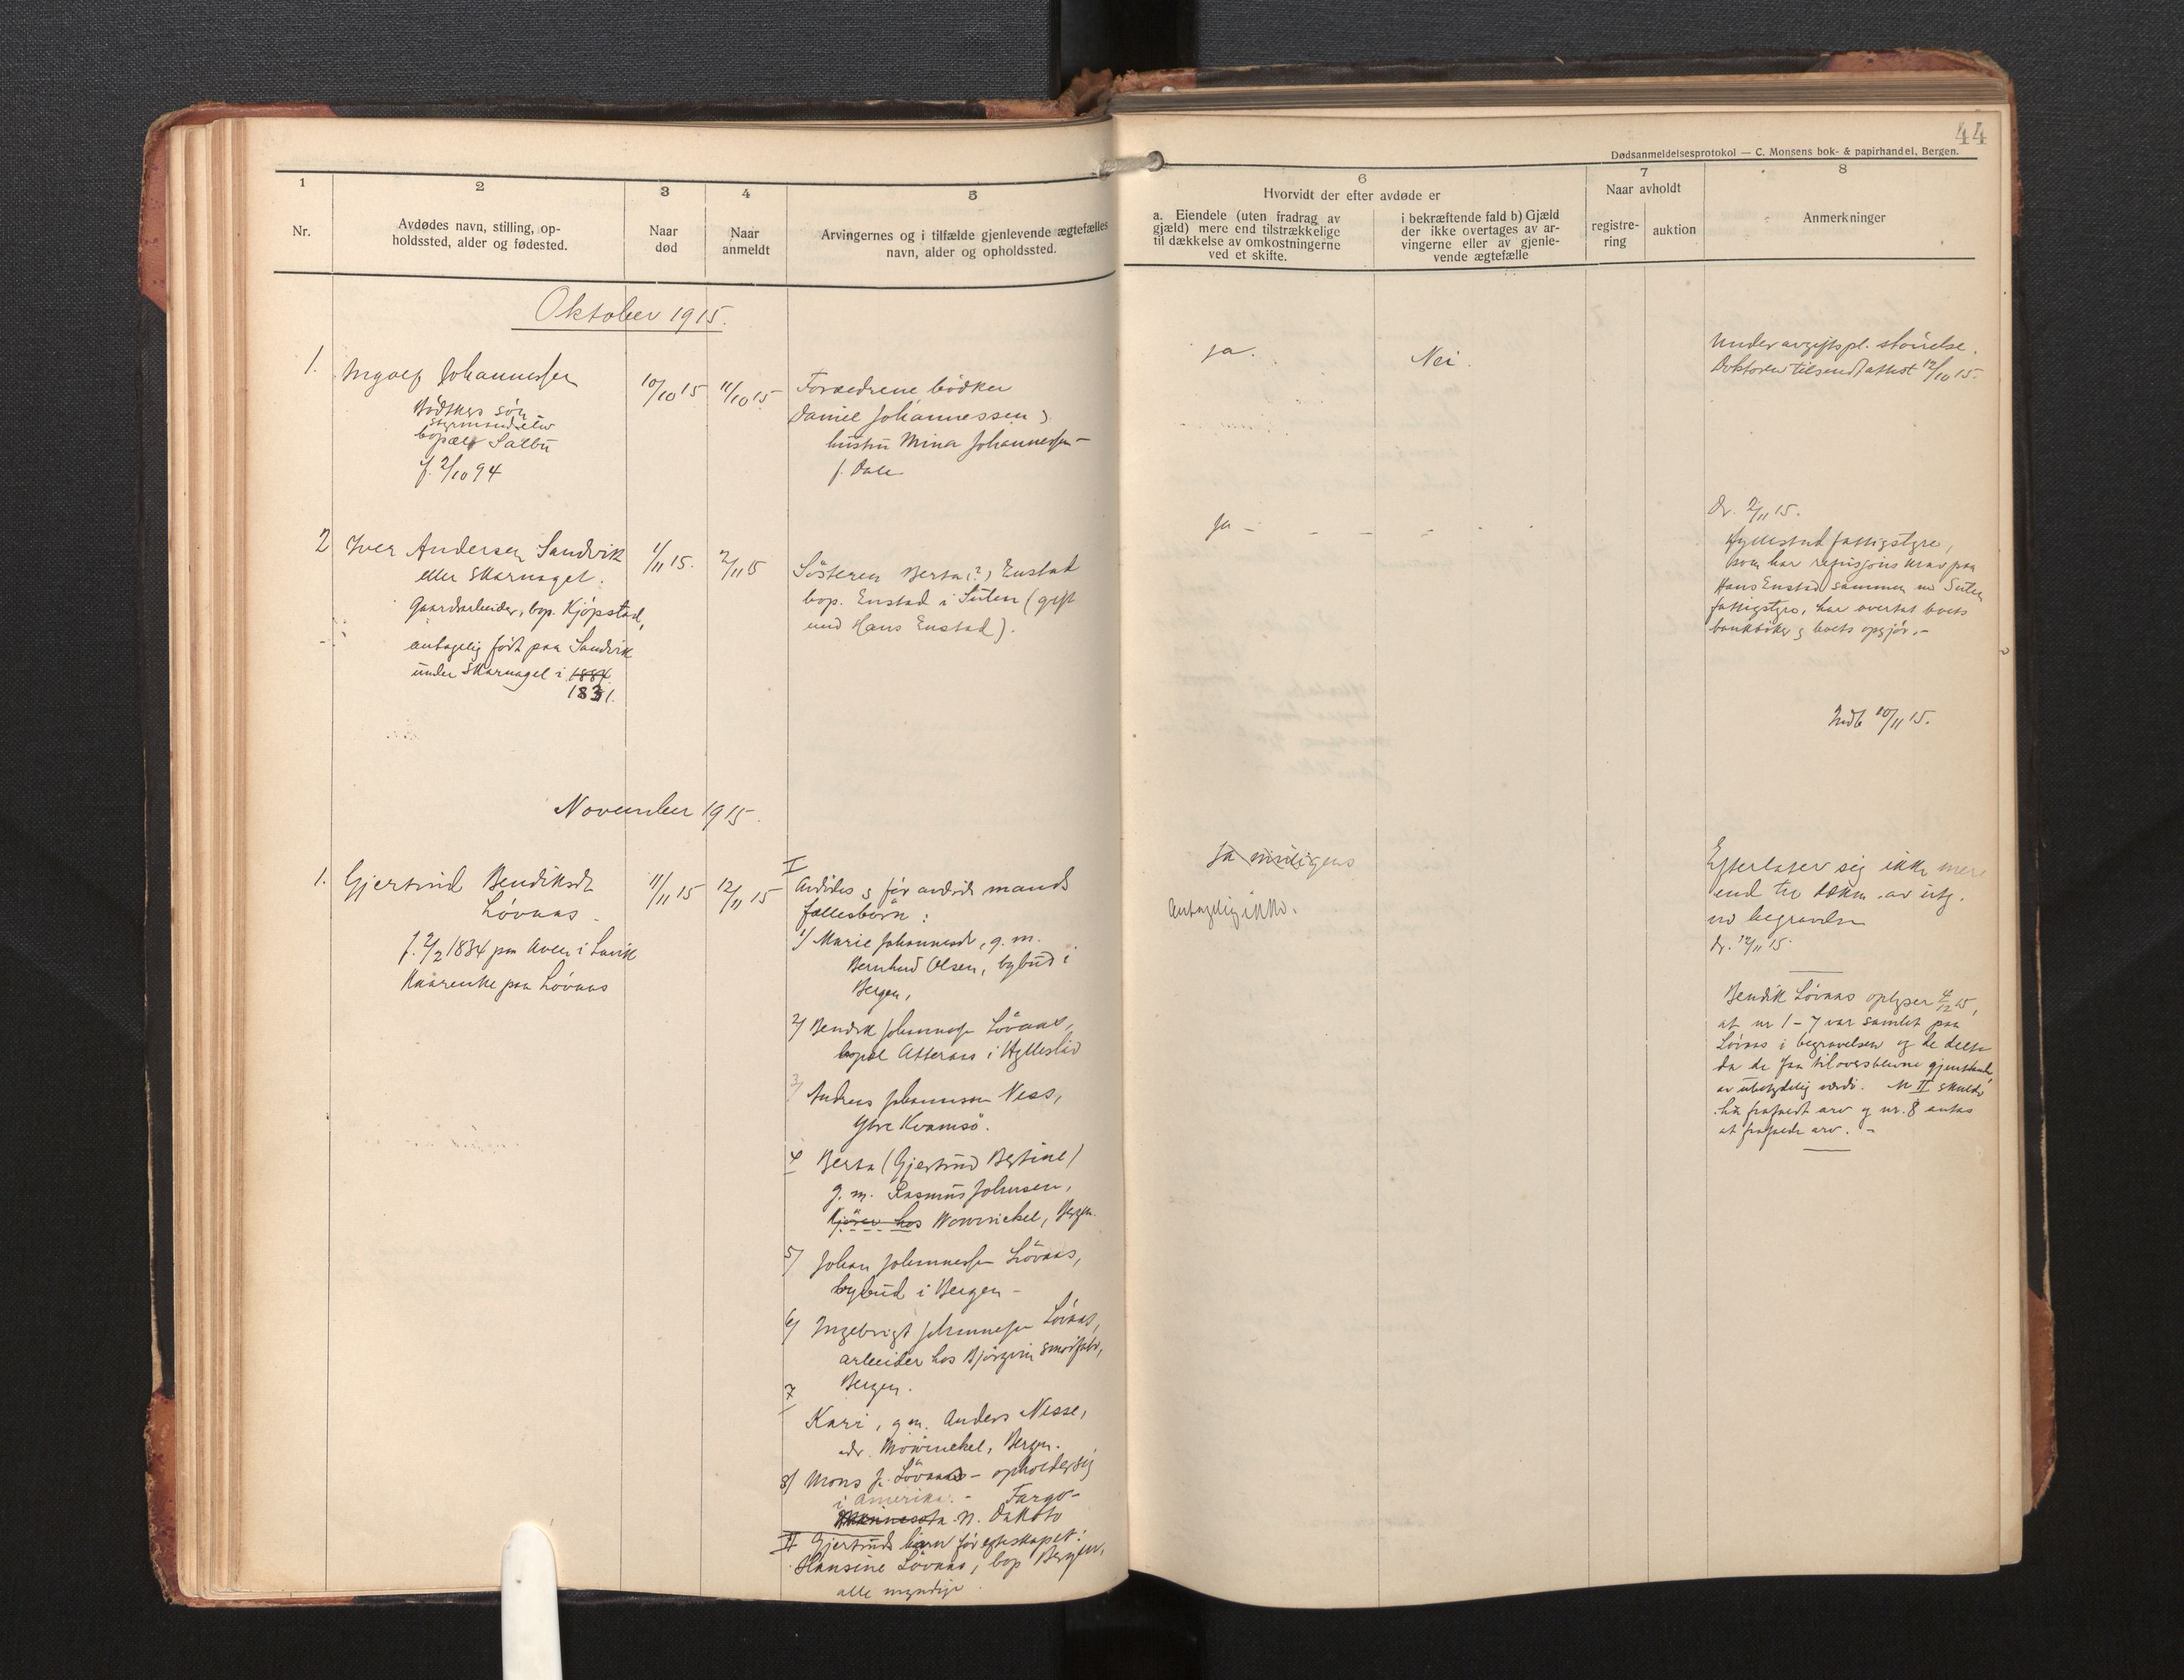 44
Dødsanmeldelsesprotokol — C. Monsens bok- & papirhandel, Bergen.
1
Nr.
2
Avdødes navn, stilling, op-
holdssted, alder og fødested.
3
Naar
død
4
Naar
anmeldt
5
Arvingernes og i tilfælde gjenlevende ægtefælles
navn, alder og opholdssted.
6
Hvorvidt der efter avdøde er
a. Eiendele (uten fradrag av
gjæld) mere end tilstrækkelige
til dækkelse av omkostningerne
ved et skifte.
i bekræftende fald b) Gjæld
der ikke overtages av ar-
vingerne eller av gjenle-
vende ægtefælle
7
Naar avholdt
registre-
ring
auktion
8
Anmerkninger
Oktober 1915.
1.
Ingolf Johannessen
Bødkers søn
styrmandselev
bopæl Salbu
f. 2/10 94
10/10 15
11/10 15
Forældrene bödker
Daniel Johannessen
hustru Mina Johannessen
f. Dale
ja.
Nei.
Under avgiftspl. størrelse.
Doktoren tilsendt attest 12/10 15.
2
Iver Andersen Sandvik
eller Skarnagel.
Gaardarbeider, bop. Kjøpstad,
antagelig født paa Sandvik
under Skarnagel i 1884.
1831.
1/11 15.
2/11 15
Søsteren Berta (?) Enstad
bop. Enstad i Sulen (gift
med Hans Enstad).
Ja - - - - -
Dr. 2/11 15.
Hyllestad fattigstyre,
som har refusjonskrav paa
Hans Enstad sammen med Sulen
fattigstyre, har overtat boets
bankbøker og boets opgjør. -
Indb 10/11 15.
November 1915.
1.
Gjertrud Bendiksdt
Løvaas.
f. 2/2 1834 paa Aven i Lavik
Kaarenke paa Løvaas
11/11 15
12/11 15
I
Avdødes og før avdøde mands
fællesbørn:
1/ Marie Johannesdt, g. m.
Bernhard Olsen, bybud i
Bergen,
2/ Bendik Johannessen Løvaas,
bopæl Atteraas i Hyllestad
3/ Andreas Johannessen Ness,
Ytre Kvamsø.
4 Berta (Gjertrud Bertine)
g. m. Rasmus Johnsen,
Kjører hos Mowinckel, Bergen.
5/ Johan Johannessen Løvaas,
bybud i Bergen -
6/ Ingebrigt Johannessen Løvaas,
arbeider hos Bjørgvin smørfabr,
Bergen.
7
Kari, g m. Anders Nesse,
adr. Mowinckel, Bergen.
8/ Mons J. Løvaas - opholder sig
i Amerika. - Fargo-
Minnesota N. Dakota
II Gjertruds barn før egteskapet:
Hansine Løvaas, bop Bergen,
alle myndige.
Ja visselig
Antagelig ikke.
Efterlater sig ikke mere
end til dækn. av utg.
ved begravelsen
Dr. 12/11 15.
Bendik Løvaas oplyser 4/12 15,
at nr 1-7 var samlet paa
Løvaas i begravelsen og de delte
da de faa tiloversblevne gjenstande
av ubetydelig værdi. Nr II skulde
ha frafaldt arv og nr. 8 antas
at frafalde arv. -